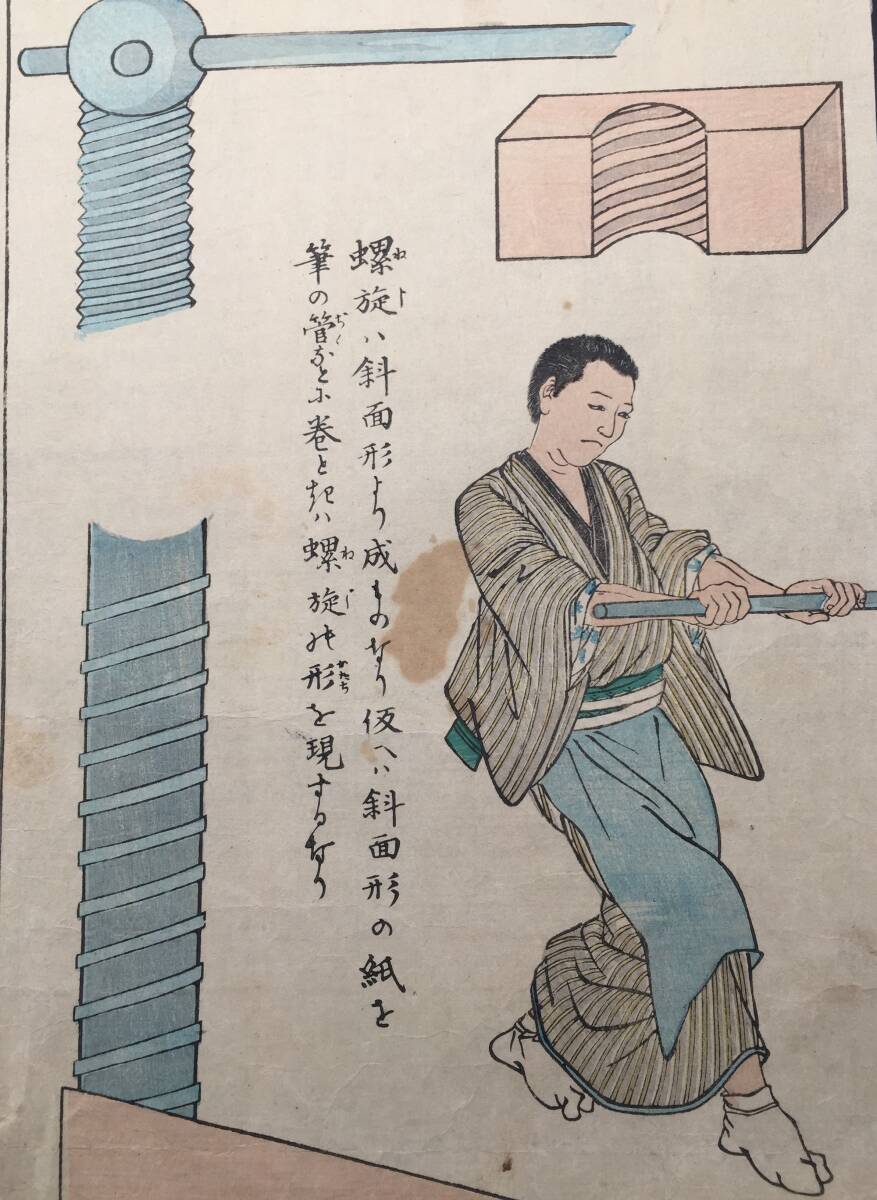 螺旋ハ斜面形より成ものなり仮へハ斜面形の紙を
筆の管なとに巻ときハ螺旋の形を現するなり